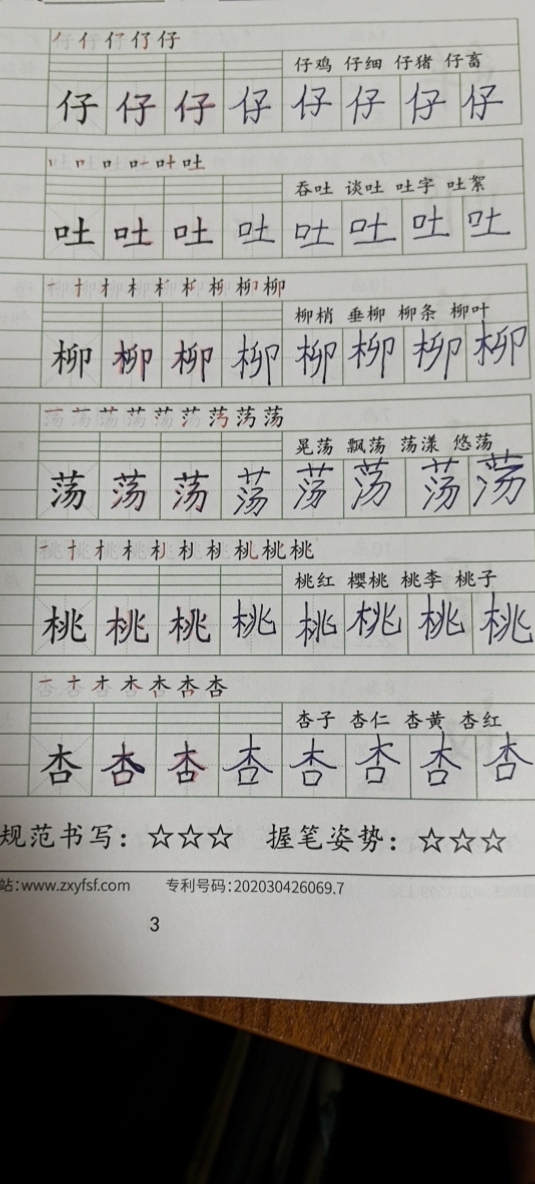 仔 仔 仔 仔 仔
仔鸡 仔细 仔猪 仔畜
仔 仔 仔 仔 仔 仔 仔 仔
吐
吞吐 谈吐 吐字 吐絮
吐 吐 吐 吐 吐 吐 吐 吐
柳
柳梢 垂柳 柳条 柳叶
柳 柳 柳 柳 柳 柳 柳 柳
荡
晃荡 飘荡 荡漾 悠荡
荡 荡 荡 荡 荡 荡 荡 荡
桃
桃红 樱桃 桃李 桃子
桃 桃 桃 桃 桃 桃 桃 桃
杏
杏子 杏仁 杏黄 杏红
杏 杏 杏 杏 杏 杏 杏 杏
规范书写：☆☆☆ 握笔姿势：☆☆☆
站：www.zxyfsf.com 专利号码：202030426069.7
3